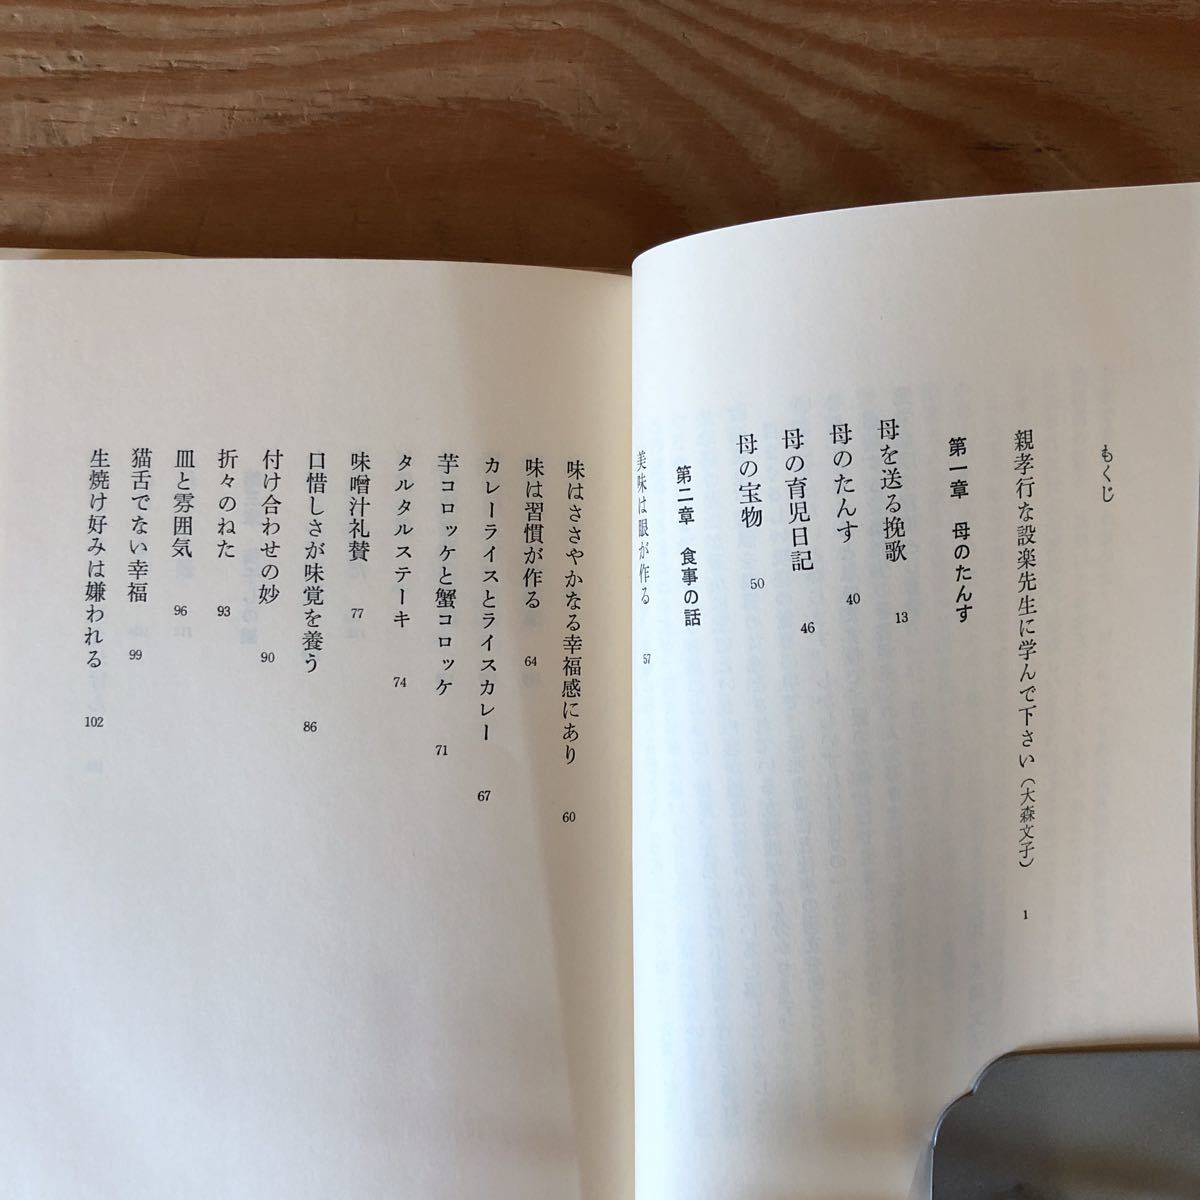 もくじ
親孝行な設楽先生に学んで下さい(大森文子) 1
第一章 母のたんす
母を送る挽歌 13
母のたんす 40
母の育児日記 46
母の宝物 50
第二章 食事の話
美味は眼が作る 57
味はささやかなる幸福感にあり 60
味は習慣が作る 64
カレーライスとライスカレー 67
芋コロッケと蟹コロッケ 71
タルタルステーキ 74
味噌汁礼賛 77
口惜しさが味覚を養う 86
付け合わせの妙 90
折々のねた 93
皿と雰囲気 96
猫舌でない幸福 99
生焼け好みは嫌われる 102